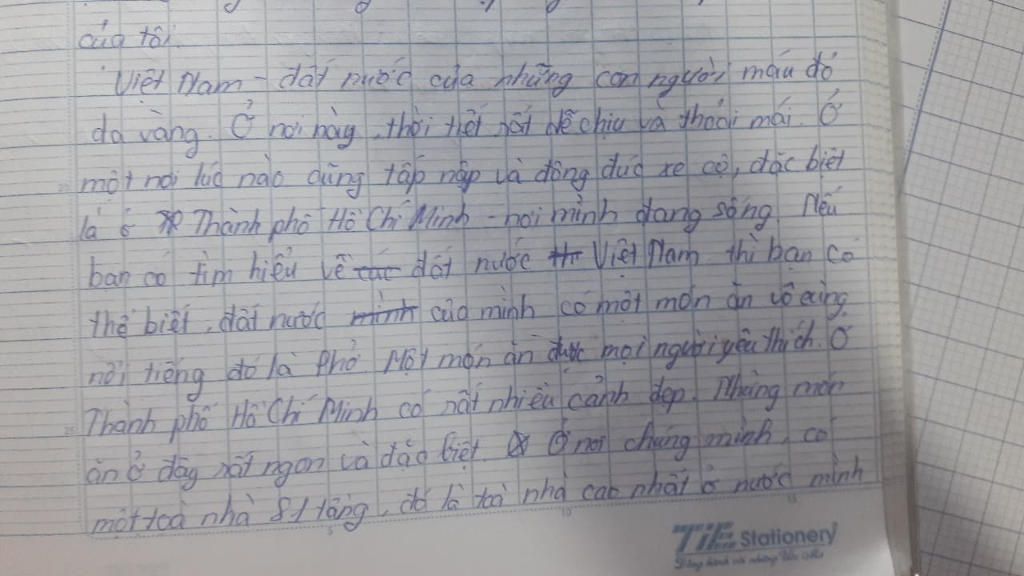 của tôi.
Việt Nam - đất nước của những con người máu đỏ
da vàng. Ở nơi này, thời tiết rất dễ chịu và thoải mái. Ở
một nơi lúc nào cũng tấp nập và đông đúc xe cộ, đặc biệt
là ở Thành phố Hồ Chí Minh - nơi mình đang sống. Nếu
bạn có tìm hiểu về các đất nước th Việt Nam thì bạn có
thể biết, đất nước mình của mình có một món ăn vô cùng
nổi tiếng đó là Phở. Một món ăn được mọi người yêu thích. Ở
Thành phố Hồ Chí Minh có rất nhiều cảnh đẹp. Những món
ăn ở đây rất ngon và đặc biệt. Ở nơi chúng mình, có
một toà nhà 81 tầng, đó là toà nhà cao nhất ở nước mình
TiE Stationery